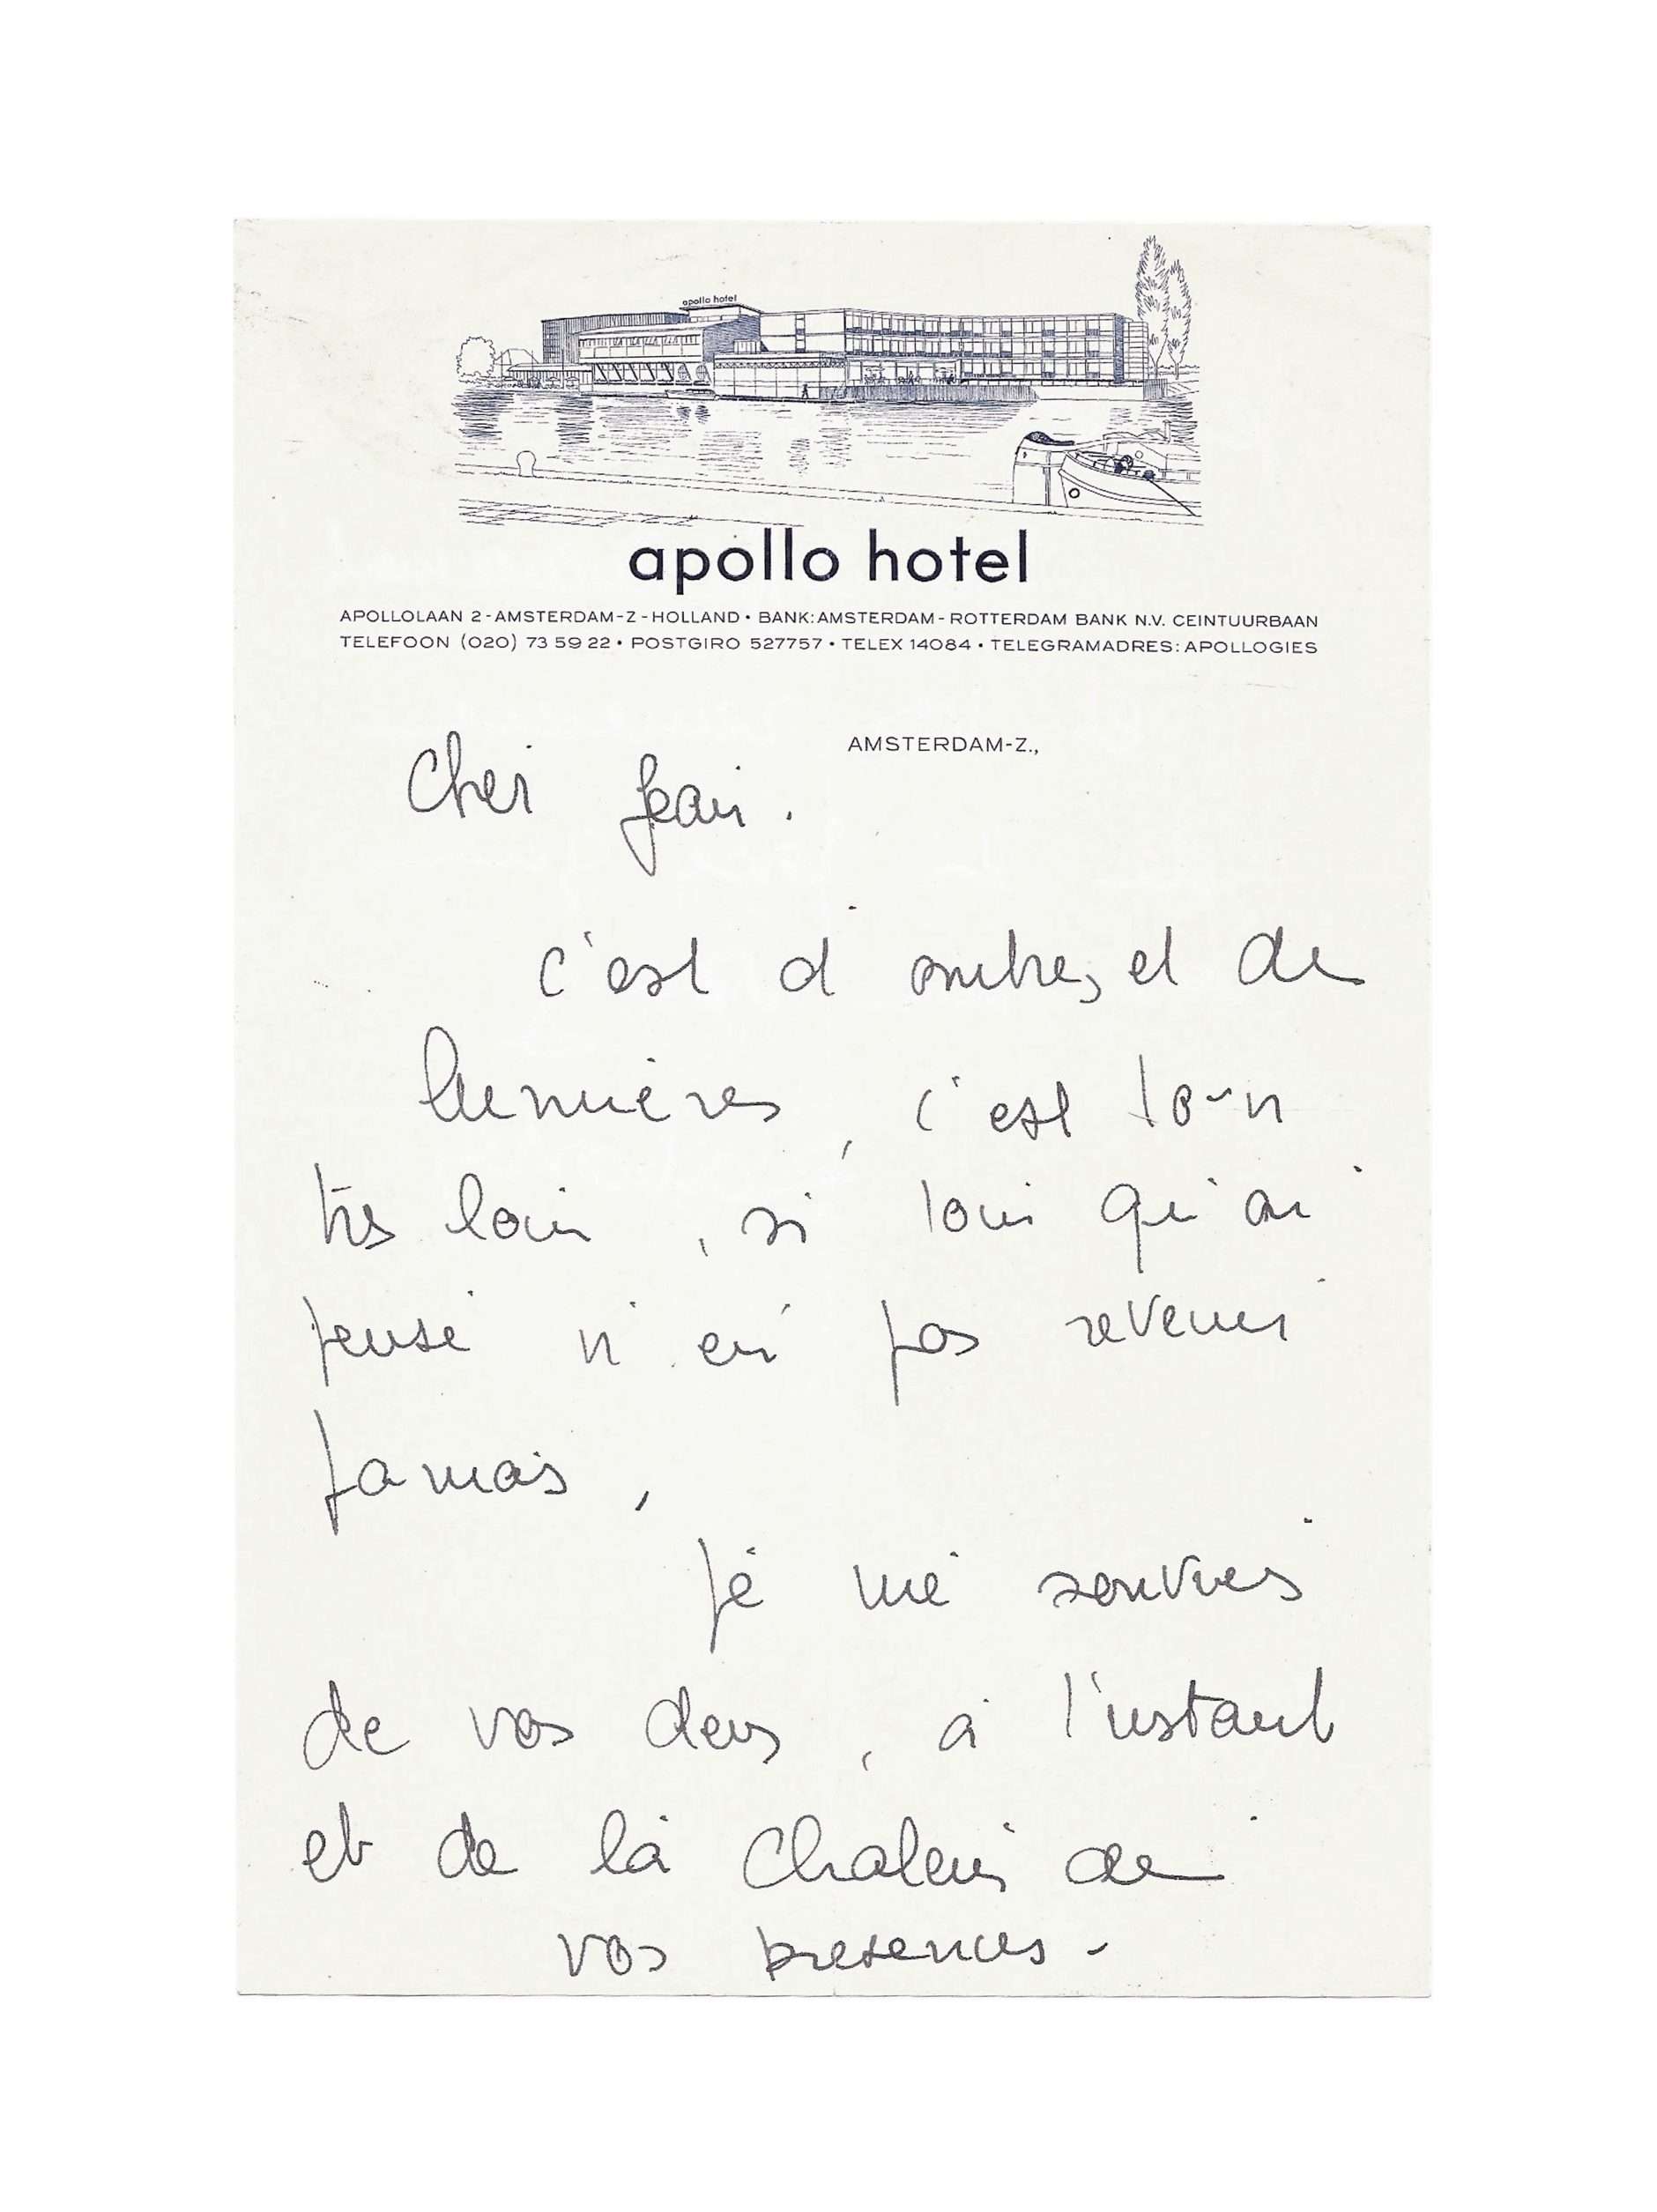 apollo hotel
apollo hotel
APOLLOLAAN 2-AMSTERDAM-Z-HOLLAND • BANK: AMSTERDAM-ROTTERDAM BANK N.V. CEINTUURBAAN
TELEFOON (020) 73 59 22 • POSTGIRO 527757 • TELEX 14084 • TELEGRAMADRES: APOLLOGIES
AMSTERDAM-Z.,
Cher Jean.
c'est d'ombres, et de
lumières, c'est loin
très loin, si loin qu'on
pense n'en pas revenir
jamais,
Je me souviens
de vos deux, à l'instant
et de la Chaleur de
vos presences -